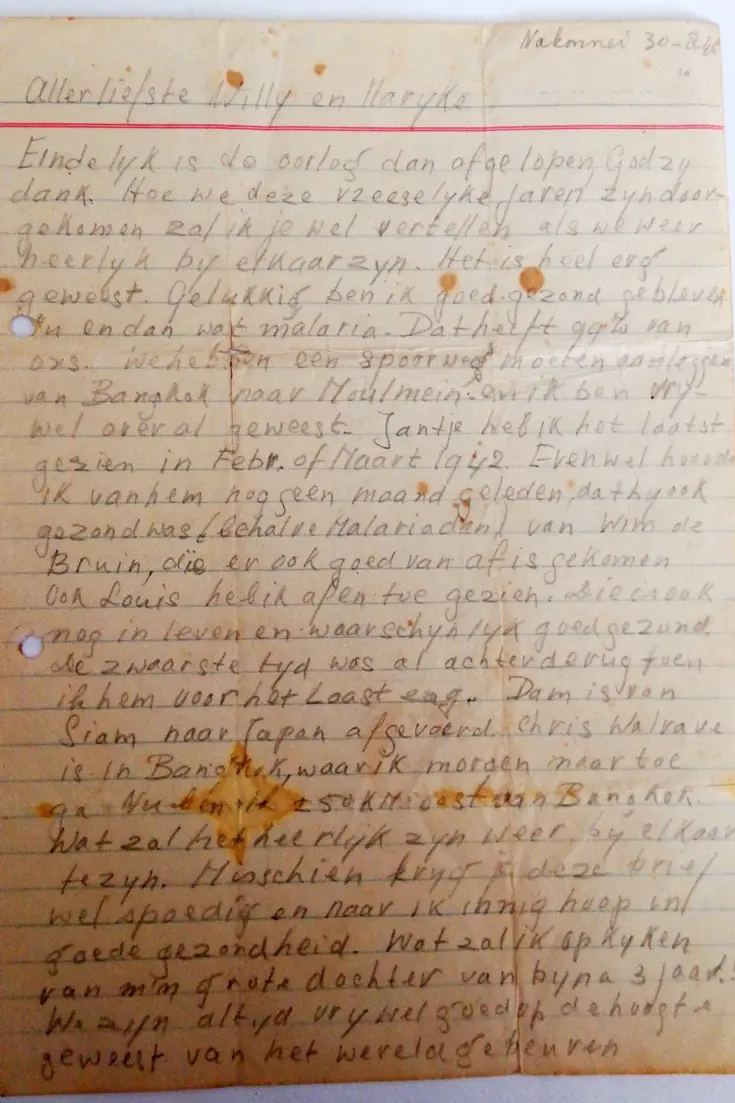 Nakonnei 30-8-45
Allerliefste Willy en Maryke
Eindelyk is de oorlog dan afgelopen, Godzy
dank. Hoe we deze vreeselyke jaren zyn door-
gekomen zal ik je wel vertellen als we weer
heerlyk by elkaar zyn. Het is heel erg
geweest. Gelukkig ben ik goed gezond gebleven
nu en dan wat malaria. Dat heeft 99% van
ons. We hebben een spoorweg moeten aanleggen
van Bangkok naar Moulmein en ik ben vry-
wel overal geweest. Jantje heb ik het laatst
gezien in Febr. of Maart 1942. Evenwel hoorde
ik van hem nog geen maand geleden, dat hy ook
gezond was (behalve Malaria dan) van Wim de
Bruin, die er ook goed van af is gekomen
Ook Louis heb ik af en toe gezien. Die is ook
nog in leven en waarschynlyk goed gezond.
De zwaarste tyd was al achter de rug toen
ik hem voor het Laast zag. Dam is van
Siam naar Japan afgevoerd. Chris Walrave
is in Bangkok, waar ik morgen naar toe
ga Nu ben ik 250 KM oost van Bangkok.
Wat zal het heerlijk zyn weer by elkaar
te zyn. Misschien kryg je deze brief
wel spoedig en naar ik innig hoop in
goede gezondheid. Wat zal ik opkyken
van m'n grote dochter van byna 3 jaar!
We zyn altyd vry wel goed op de hoogte
geweest van het wereldgebeuren